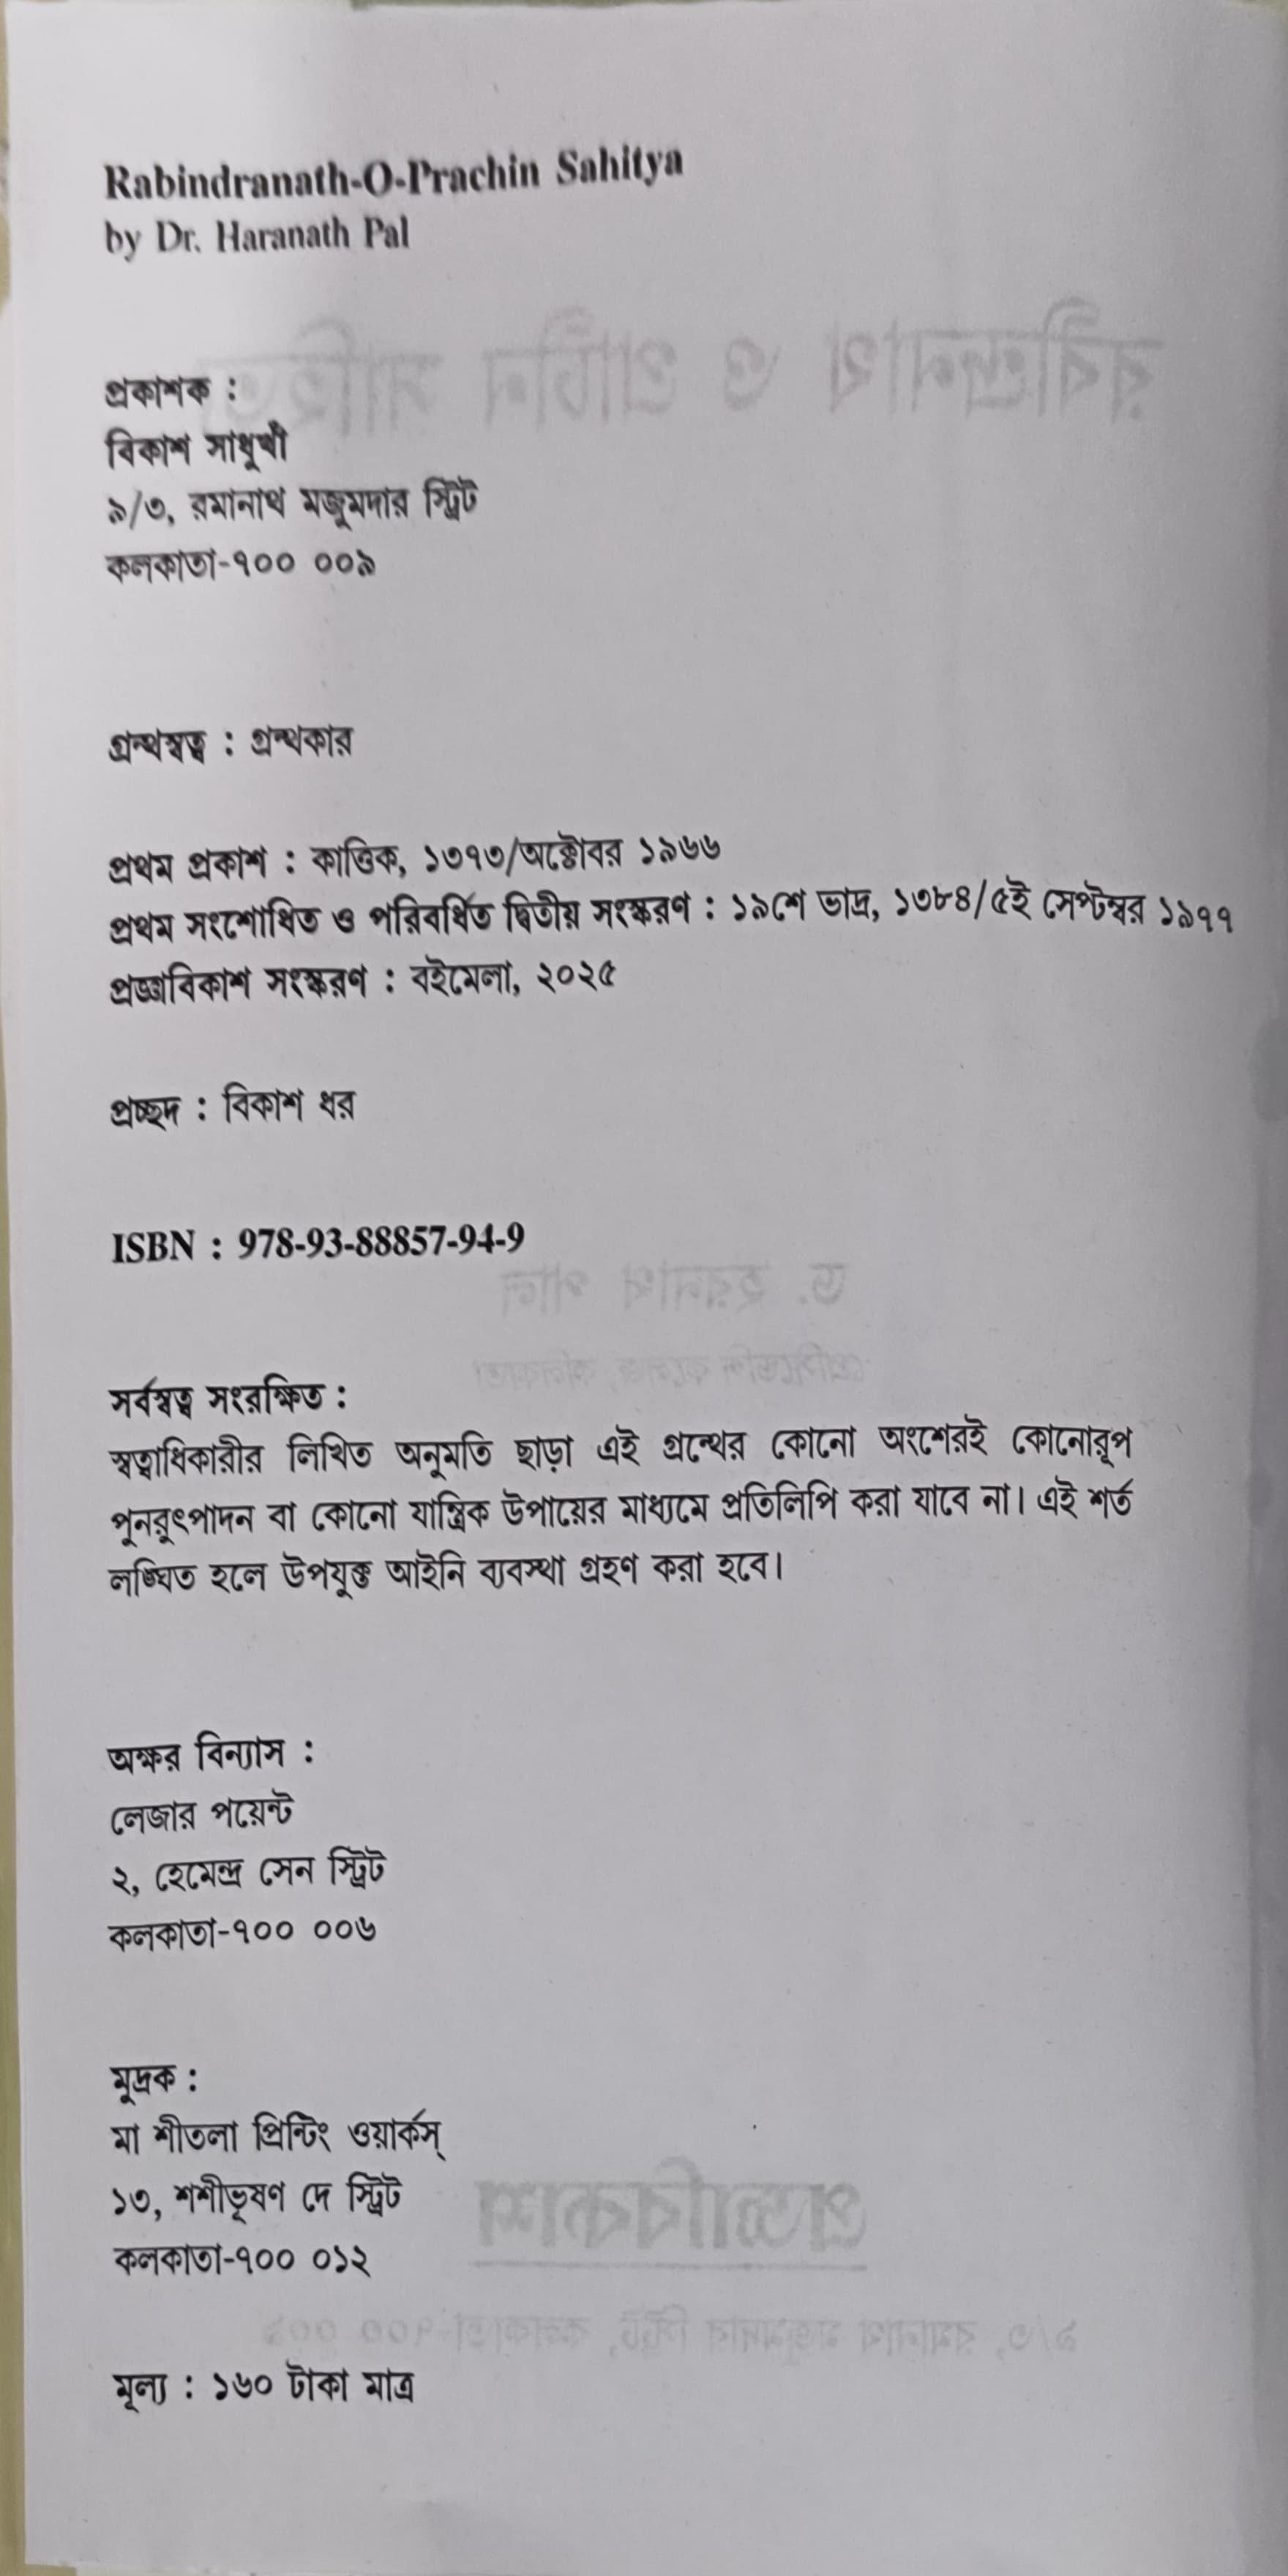 Rabindranath-O-Prachin Sahitya
by Dr. Haranath Pal
প্রকাশক :
বিকাশ সাধুখাঁ
৯/৩, রমানাথ মজুমদার স্ট্রিট
কলকাতা-৭০০ ০০৯
গ্রন্থস্বত্ব : গ্রন্থকার
প্রথম প্রকাশ : কার্ত্তিক, ১৩৭৩/অক্টোবর ১৯৬৬
প্রথম সংশোধিত ও পরিবর্ধিত দ্বিতীয় সংস্করণ : ১৯শে ভাদ্র, ১৩৮৪/৫ই সেপ্টেম্বর ১৯৭৭
প্রজ্ঞাবিকাশ সংস্করণ : বইমেলা, ২০২৫
প্রচ্ছদ : বিকাশ ধর
ISBN : 978-93-88857-94-9
সর্বস্বত্ব সংরক্ষিত :
স্বত্বাধিকারীর লিখিত অনুমতি ছাড়া এই গ্রন্থের কোনো অংশেরই কোনোরূপ
পুনরুৎপাদন বা কোনো যান্ত্রিক উপায়ের মাধ্যমে প্রতিলিপি করা যাবে না। এই শর্ত
লঙ্ঘিত হলে উপযুক্ত আইনি ব্যবস্থা গ্রহণ করা হবে।
অক্ষর বিন্যাস :
লেজার পয়েন্ট
২, হেমেন্দ্র সেন স্ট্রিট
কলকাতা-৭০০ ০০৬
মুদ্রক :
মা শীতলা প্রিন্টিং ওয়ার্কস্
১৩, শশীভূষণ দে স্ট্রিট
কলকাতা-৭০০ ০১২
মূল্য : ১৬০ টাকা মাত্র